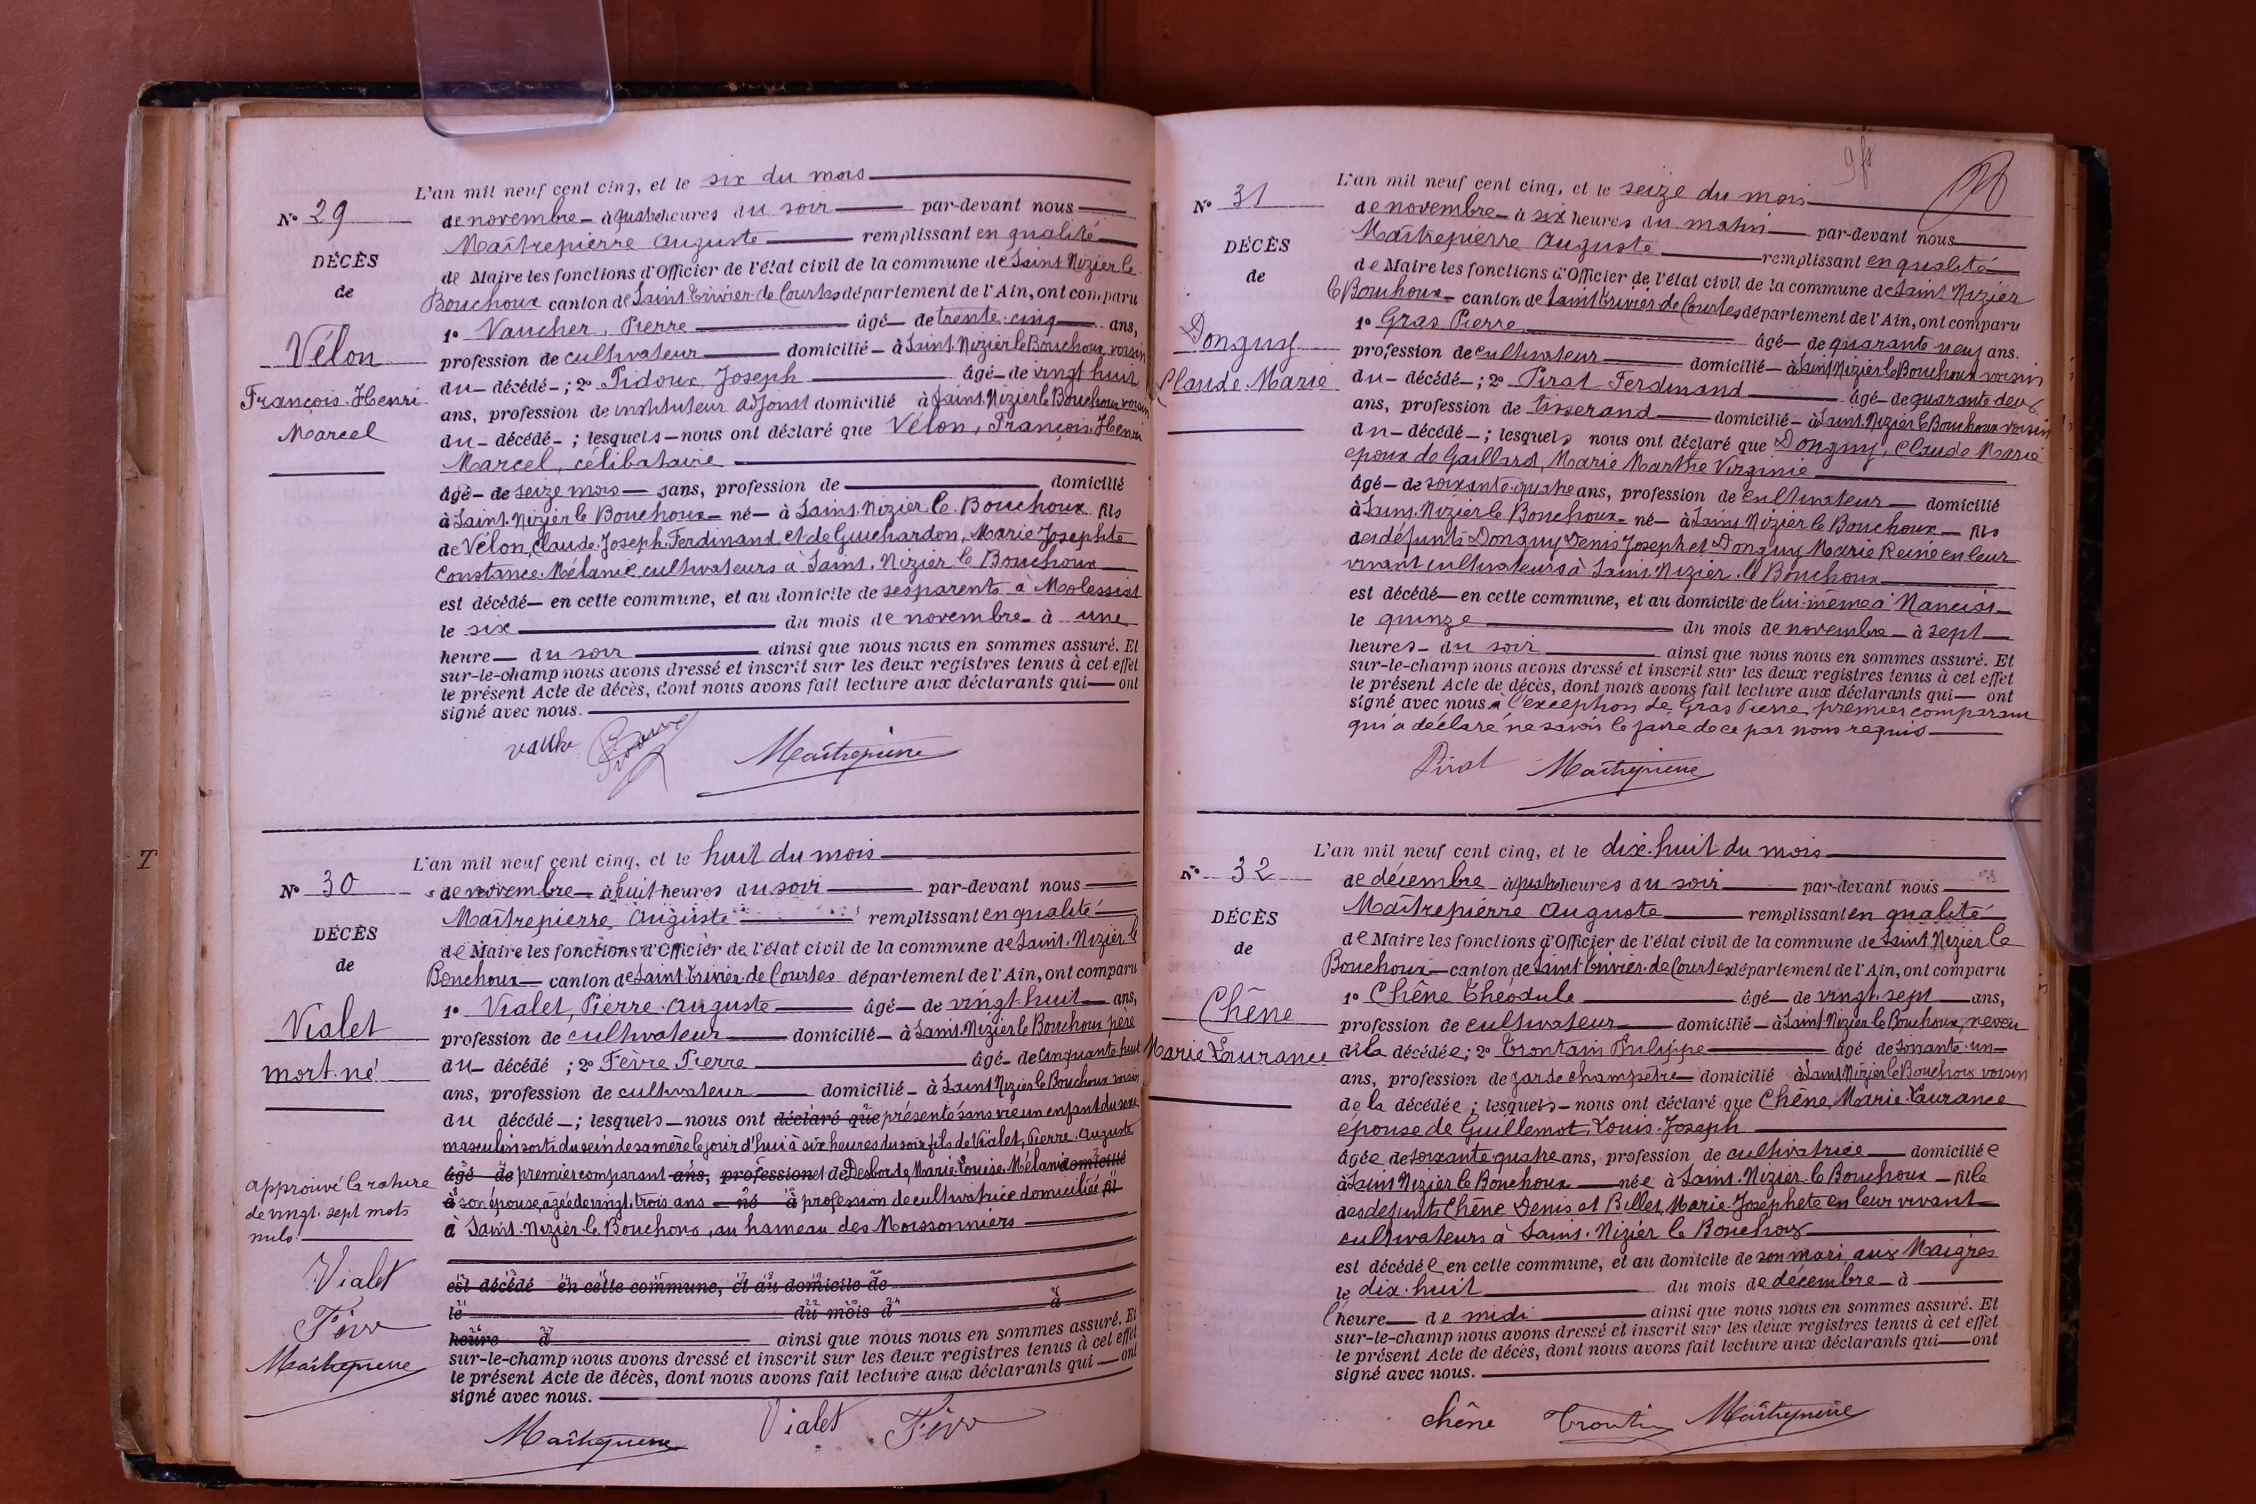 L'an mil neuf cent cinq, et le six du mois
N° 29
de novembre à quatre heures du soir par-devant nous
Maîtrepierre Auguste remplissant en qualité
DÉCÈS
de Maire les fonctions d'Officier de l'état civil de la commune de Saint Nizier le
de
Bouchoux canton de Saint Trivier de Courtes département de l'Ain, ont comparu
1° Vaucher, Pierre âgé de trente-cinq ans,
Vélon
profession de cultivateur domicilié à Saint Nizier le Bouchoux voisin
du décédé ; 2° Pidoux Joseph âgé de vingt huit
François-Henri
ans, profession de instituteur adjoint domicilié à Saint Nizier le Bouchoux voisin
Marcel
du décédé ; lesquels nous ont déclaré que Vélon, François-Henri
Marcel, célibataire
âgé de seize mois ans, profession de domicilié
à Saint-Nizier le Bouchoux né à Saint-Nizier le Bouchoux fils
de Vélon, Claude-Joseph-Ferdinand et de Guichardon, Marie-Josephte
Constance-Mélanie cultivateurs à Saint-Nizier le Bouchoux
est décédé en cette commune, et au domicile de ses parents à Molessiat
le six du mois de novembre à une
heure du soir ainsi que nous nous en sommes assuré. Et
sur-le-champ nous avons dressé et inscrit sur les deux registres tenus à cet effet
le présent Acte de décès, dont nous avons fait lecture aux déclarants qui ont
signé avec nous.
Maîtrepierre
L'an mil neuf cent cinq, et le huit du mois
N° 30
de novembre à huit heures du soir par-devant nous
Maîtrepierre Auguste remplissant en qualité
DÉCÈS
de Maire les fonctions d'Officier de l'état civil de la commune de Saint-Nizier le
de
Bouchoux canton de Saint Trivier de Courtes département de l'Ain, ont comparu
1° Vialet, Pierre-Auguste âgé de vingt-huit ans,
Vialet
profession de cultivateur domicilié à Saint-Nizier le Bouchoux père
mort-né
du décédé ; 2° Fèvre Pierre âgé de cinquante huit
ans, profession de cultivateur domicilié à Saint Nizier le Bouchoux voisin
du décédé ; lesquels nous ont déclaré que présenté sans vie un enfant du sexe
masculin sorti du sein de sa mère le jour d'hui à six heures du soir fils de Vialet, Pierre-Auguste
âgé de premier comparant ans, profession et de Desborde, Marie-Louise-Mélanie domicilié
à son épouse, âgée de vingt-trois ans né à profession de cultivatrice domiciliée fil
à Saint-Nizier le Bouchoux, au hameau des Moissonniers
approuvé la rature
de vingt-sept mots
nuls
est décédé en cette commune, et au domicile de
Vialet
le du mois d à
Fèvre
heure d ainsi que nous nous en sommes assuré. Et
sur-le-champ nous avons dressé et inscrit sur les deux registres tenus à cet effet
Maîtrepierre
le présent Acte de décès, dont nous avons fait lecture aux déclarants qui ont
signé avec nous.
Maîtrepierre Vialet Fèvre
L'an mil neuf cent cinq, et le seize du mois
N° 31
de novembre à six heures du matin par-devant nous
Maîtrepierre Auguste remplissant en qualité
DÉCÈS
de Maire les fonctions d'Officier de l'état civil de la commune de Saint Nizier
de
le Bouchoux canton de Saint Trivier de Courtes département de l'Ain, ont comparu
1° Gras Pierre âgé de quarante neuf ans.
Donguy
profession de cultivateur domicilié à Saint Nizier le Bouchoux voisin
Claude-Marie
du décédé ; 2° Pirat Ferdinand âgé de quarante deux
ans, profession de tisserand domicilié à Saint-Nizier le Bouchoux voisin
du décédé ; lesquels nous ont déclaré que Donguy, Claude Marie
époux de Gaillard, Marie Marthe Virginie
âgé de soixante-quatre ans, profession de cultivateur domicilié
à Saint-Nizier le Bouchoux né à Saint Nizier le Bouchoux fils
des défunts Donguy Denis Joseph et Donguy Marie Reine en leur
vivant cultivateurs à Saint-Nizier-le Bouchoux
est décédé en cette commune, et au domicile de lui-même à Nancist
le quinze du mois de novembre à sept
heures du soir ainsi que nous nous en sommes assuré. Et
sur-le-champ nous avons dressé et inscrit sur les deux registres tenus à cet effet
le présent Acte de décès, dont nous avons fait lecture aux déclarants qui ont
signé avec nous à l'exception de Gras Pierre, premier comparant
qui a déclaré ne savoir le faire de ce par nous requis
Pirat Maîtrepierre
L'an mil neuf cent cinq, et le dix-huit du mois
N° 32
de décembre à quatre heures du soir par-devant nous
Maîtrepierre Auguste remplissant en qualité
DÉCÈS
de Maire les fonctions d'Officier de l'état civil de la commune de Saint Nizier le
de
Bouchoux canton de Saint-Trivier-de Courtes département de l'Ain, ont comparu
1° Chêne Théodule âgé de vingt-sept ans,
Chêne
profession de cultivateur domicilié à Saint Nizier le Bouchoux, neveu
Marie Laurance
de la décédée ; 2° Trontain Philippe âgé de soixante-un
ans, profession de garde champêtre domicilié à Saint Nizier le Bouchoux voisin
de la décédée ; lesquels nous ont déclaré que Chêne, Marie-Laurance
épouse de Guillemot, Louis-Joseph
âgée de soixante quatre ans, profession de cultivatrice domiciliée
à Saint Nizier le Bouchoux née à Saint-Nizier le Bouchoux fille
des défunts Chêne Denis et Billet, Marie-Josephete en leur vivant
cultivateurs à Saint-Nizier le Bouchoux
est décédée en cette commune, et au domicile de son mari, aux Maigres
le dix-huit du mois de décembre à
l'heure de midi ainsi que nous nous en sommes assuré. Et
sur-le-champ nous avons dressé et inscrit sur les deux registres tenus à cet effet
le présent Acte de décès, dont nous avons fait lecture aux déclarants qui ont
signé avec nous.
chêne Trontin Maîtrepierre